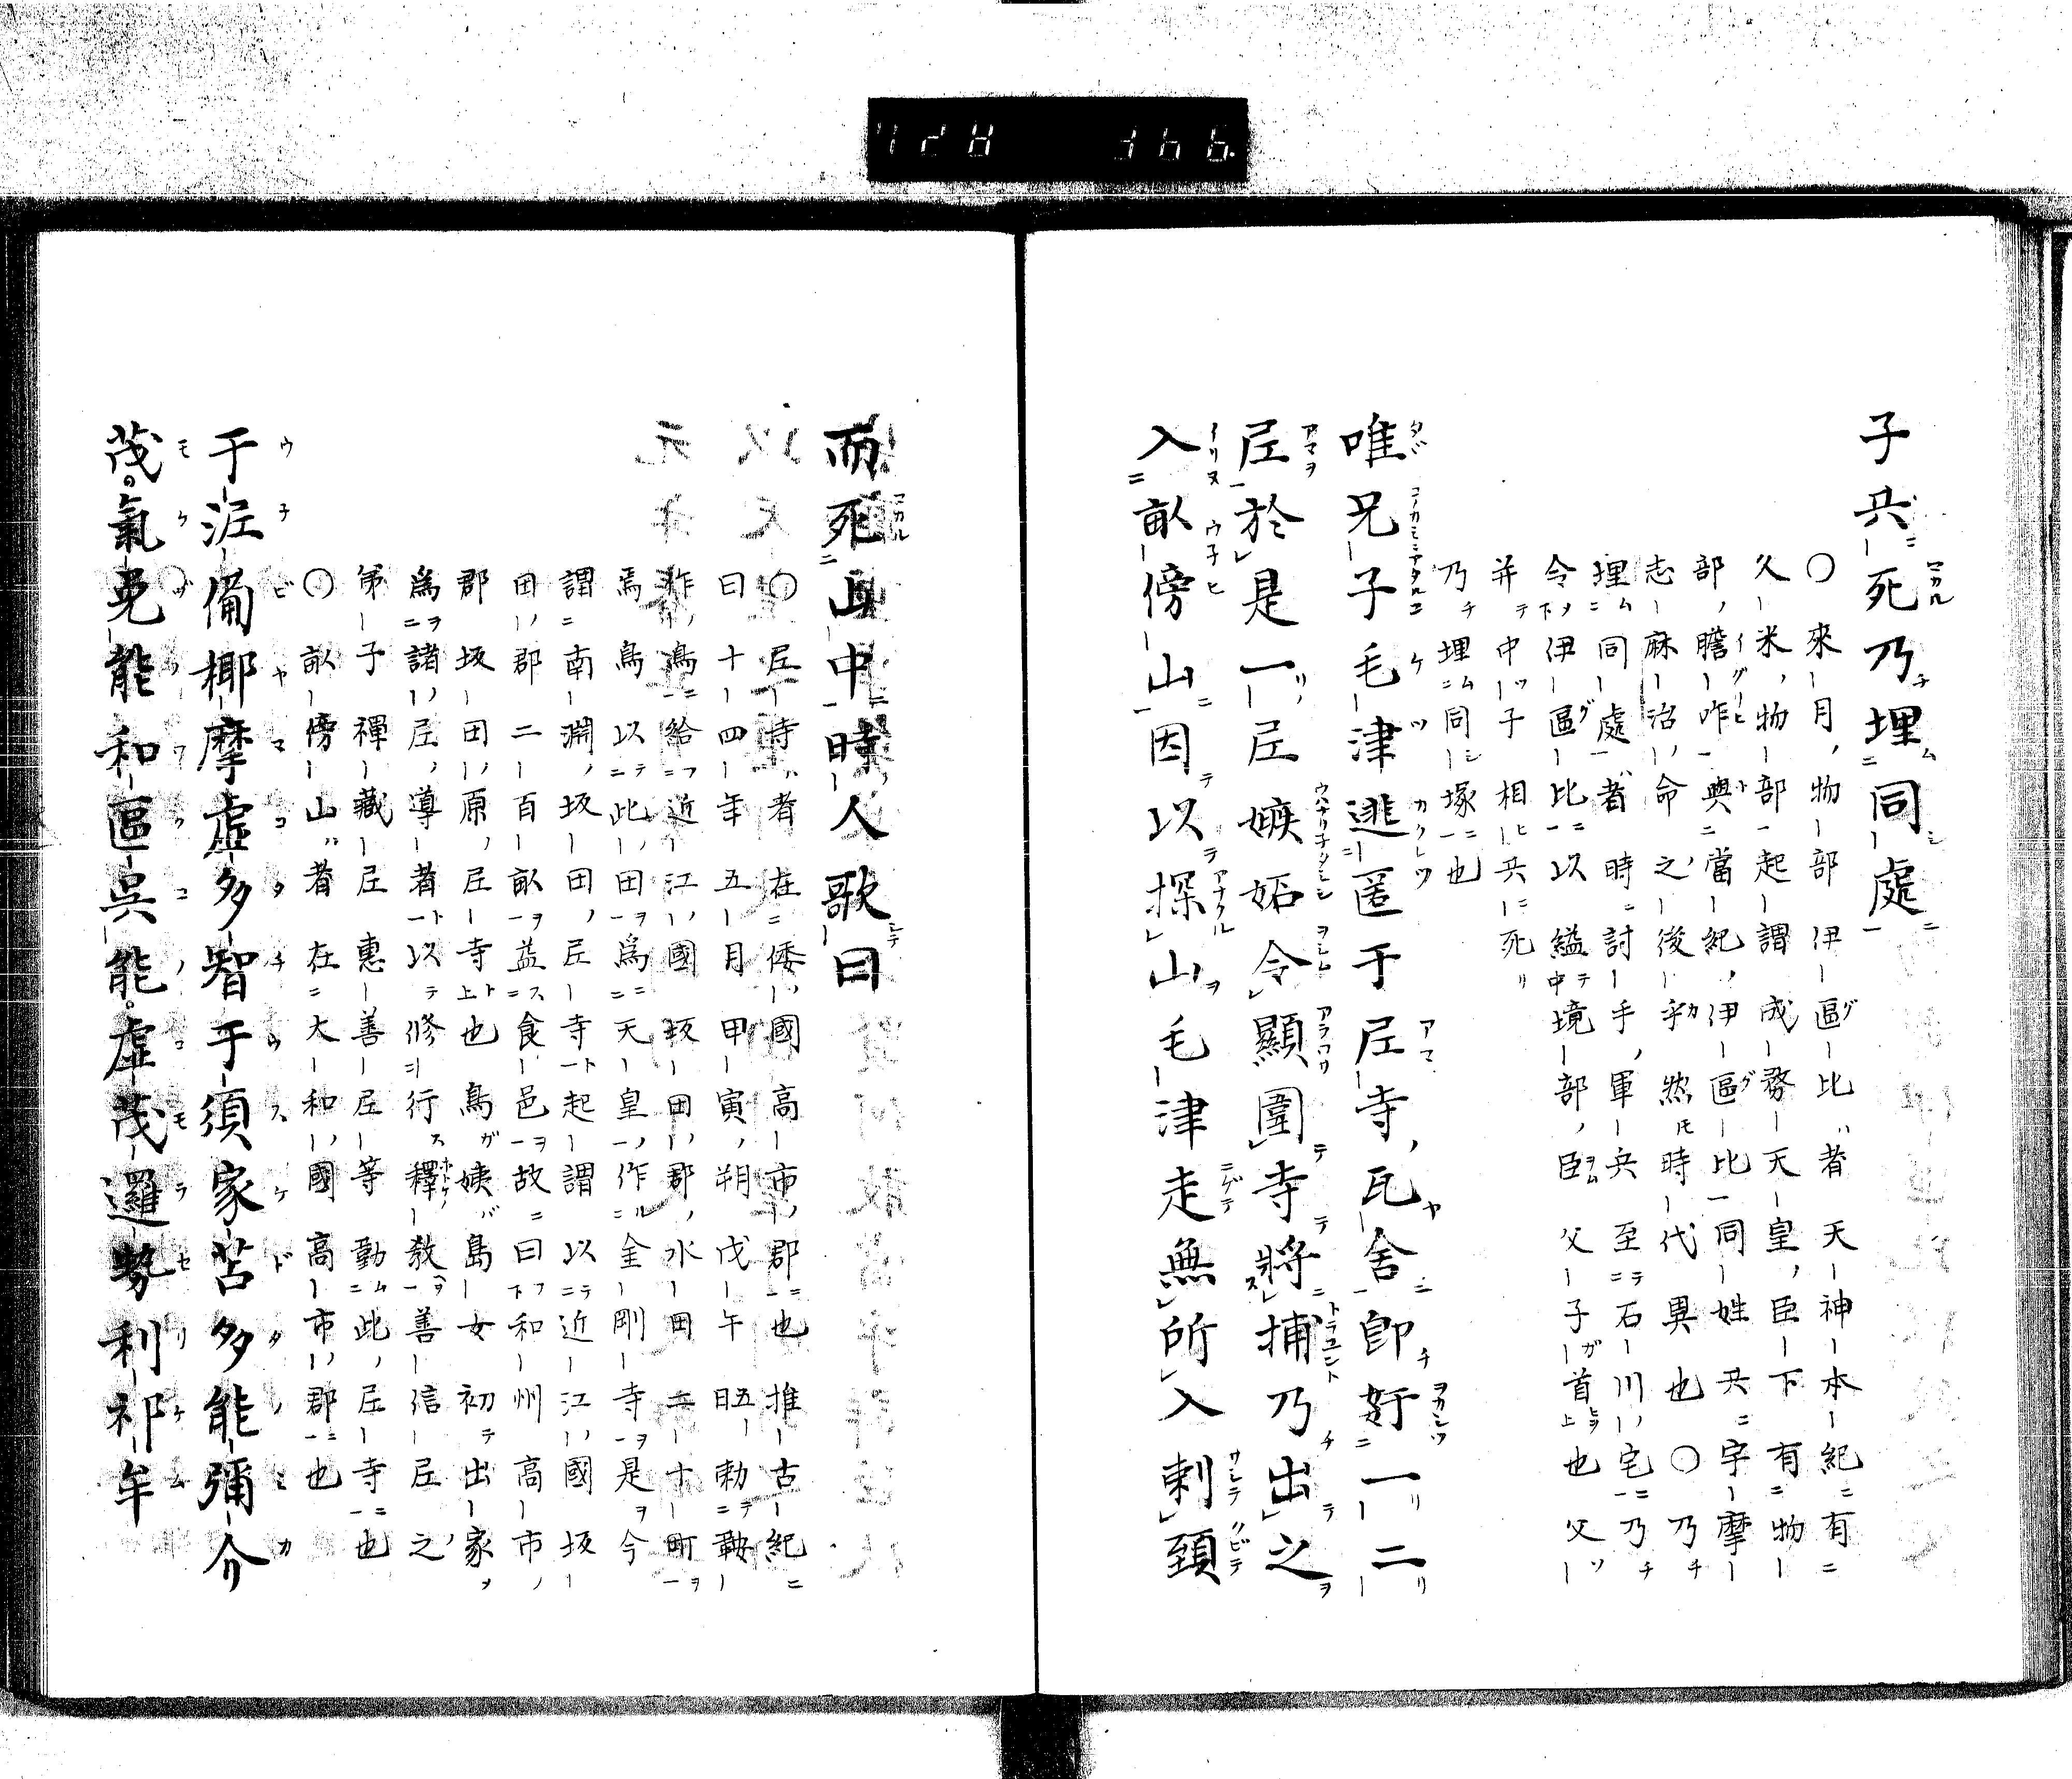 子共死乃埋同處
〇來月物部伊區比者天神本紀有
久米物部起謂成務天皇臣下有物
部膽咋與當紀伊區比同姓共宇摩
志麻治命之後和然時代異也〇乃
埋同處者時討手軍兵至石川宅乃
令伊區比以縊境部臣父子首也父
并中子相共死
乃埋同塚也
唯兄子毛津逃匿于尼寺瓦舍卽奸一二
尼於是一尼嫉妬令顯圍寺將捕乃出之
入畝傍山因以探山毛津走無所入刺頸
而死山中時人歌曰
〇尼寺者在倭國高市郡也推古紀
曰十四年五月甲寅朔戊午五日勅鞍
作鳥給近江國坂田郡水田二十町
焉鳥以此田爲天皇作金剛寺是今
謂南淵坂田尼寺起謂以近江國坂
田郡二百畝益食邑故曰和州高市
郡坂田原尼寺也鳥姨島女初出家
爲諸尼導者以修行釋敎善信尼之
弟子禪藏尼惠善尼等勤此尼寺也
〇畝傍山者在大和國高市郡也
于泥備椰摩虛多智于須家苫多能彌介
茂氣菟能和區吳能虛茂邏勢利祁牟